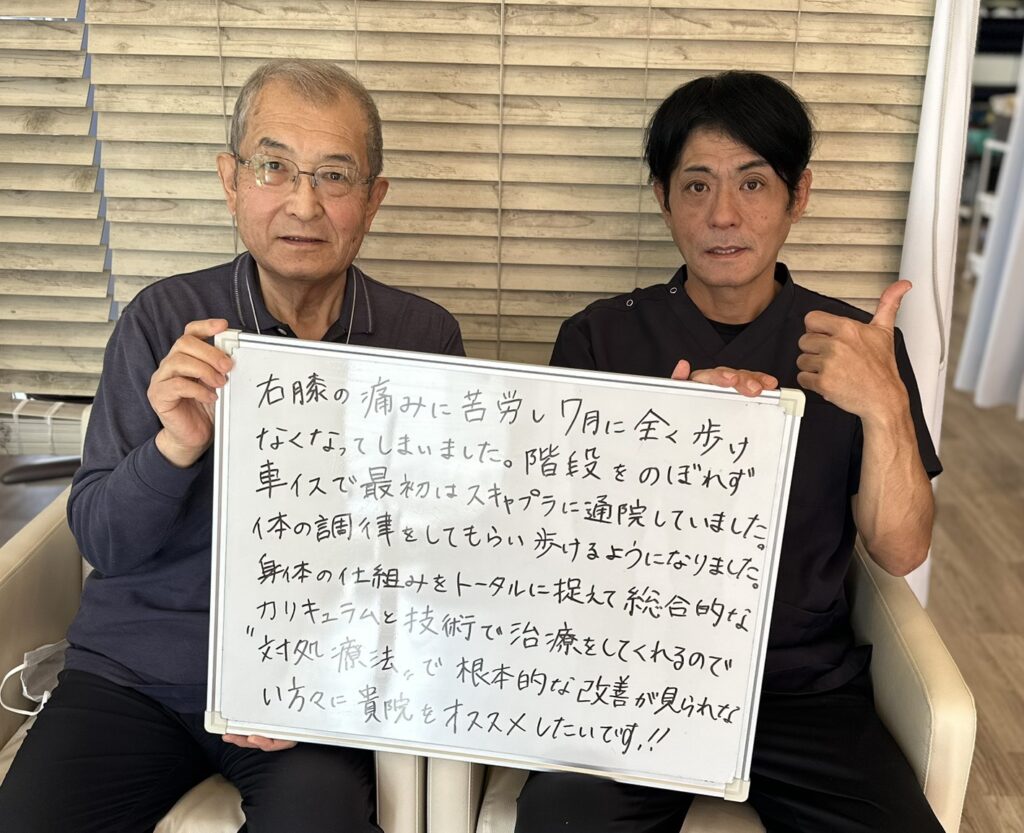 右膝の痛みに苦労し7月に全く歩け
なくなってしまいました。階段をのぼれず
車イスで最初はスキャプラに通院していました。
体の調律をしてもらい歩けるようになりました。
身体の仕組みをトータルに捉えて総合的な
カリキュラムと技術で治療をしてくれるので
〝対処療法〟で根本的な改善が見られな
い方々に貴院をオススメしたいです!!